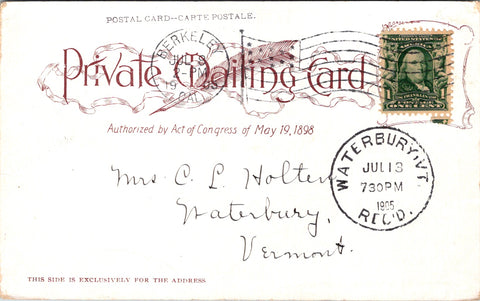 POSTAL CARD--CARTE POSTALE.
BERKELEY
JUL 8
2-PM
CAL.
Private Mailing Card
Authorized by Act of Congress of May 19, 1898
FRANKLIN
POSTAGE
ONE CENT
WATERBURY, VT.
JUL 13
730PM
1905
REC'D.
Mrs C. L. Holten
Waterbury,
Vermont.
THIS SIDE IS EXCLUSIVELY FOR THE ADDRESS.